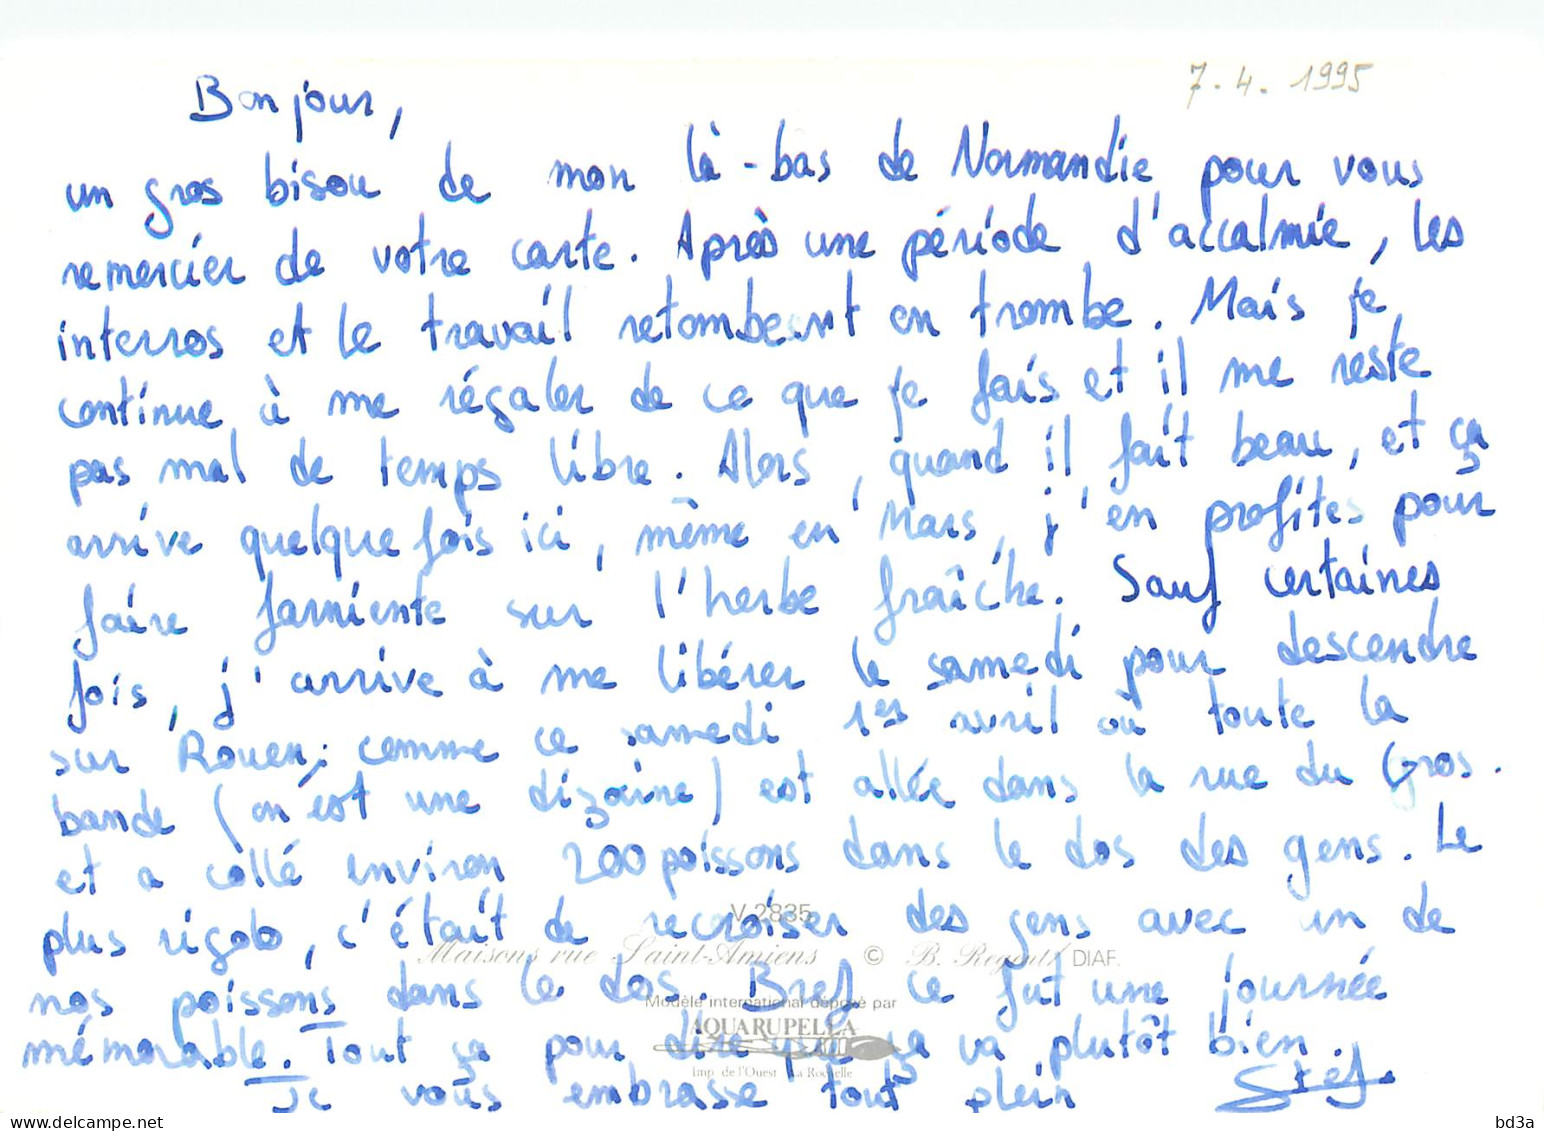 7.4.1995
Bonjour,
un gros bisou de mon là-bas de Normandie pour vous
remercier de votre carte. Après une période d'accalmie, les
interros et le travail retombent en trombe. Mais je
continue à me régaler de ce que je fais et il me reste
pas mal de temps libre. Alors, quand il fait beau, et ça
arrive quelque fois ici, même en Mars, j'en profites pour
faire farniente sur l'herbe fraîche. Sauf certaines
fois, j'arrive à me libérer le samedi pour descendre
sur Rouen; comme ce samedi 1er avril où toute la
bande (on est une dizaine) est allée dans la rue du Gros.
et a collé environ 200 poissons dans le dos des gens. Le
V 2835
plus rigolo, c'était de recroiser des gens avec un de
Maisons rue Saint-Amiens © B. Regent / DIAF.
nos poissons dans le dos. Bref ce fut une journée
Modèle international déposé par
AQUARUPELLA
mémorable. Tout ça pour dire que ça va plutôt bien.
Imp. de l'Ouest La Rochelle
Je vous embrasse tout plein Stef.
www.delcampe.net
bd3a